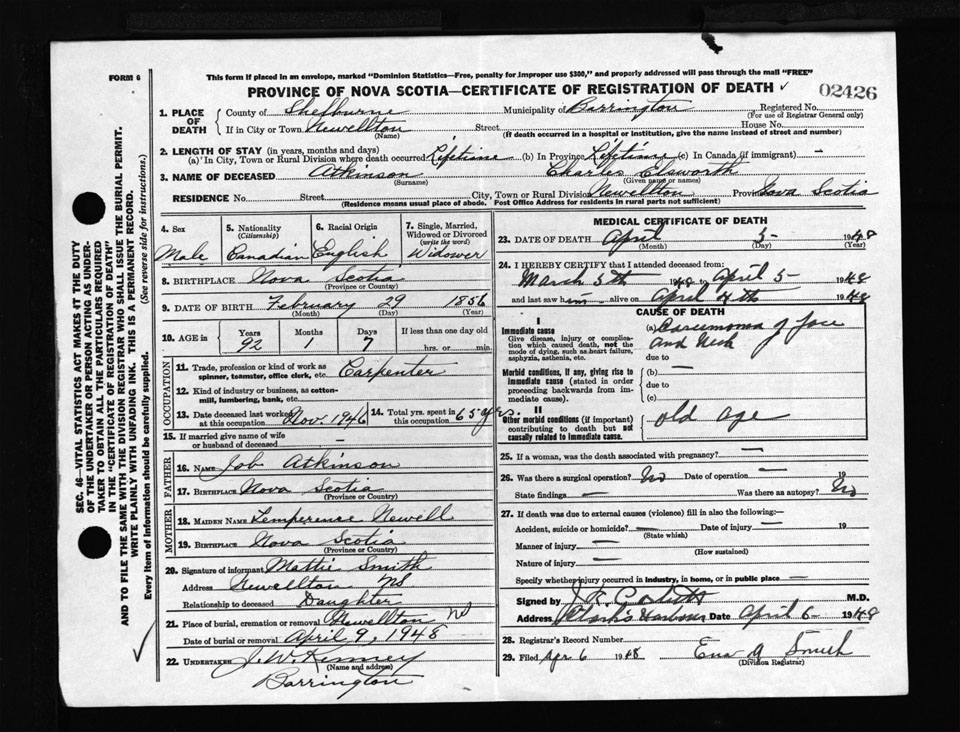 FORM 6
This form if placed in an envelope, marked "Dominion Statistics—Free, penalty for improper use $300," and properly addressed will pass through the mail "FREE"
PROVINCE OF NOVA SCOTIA—CERTIFICATE OF REGISTRATION OF DEATH ✓
02426
1. PLACE OF DEATH
County of Shelburne Municipality of Barrington Registered No.
(For use of Registrar General only)
If in City or Town Newellton Street House No.
(Name) (If death occurred in a hospital or institution, give the name instead of street and number)
2. LENGTH OF STAY (in years, months and days)
(a) In City, Town or Rural Division where death occurred Lifetime (b) In Province Lifetime (c) In Canada (if immigrant) —
3. NAME OF DECEASED Atkinson Charles Elsworth
(Surname) (Given name or names)
RESIDENCE No. Street City, Town or Rural Division Newellton Province Nova Scotia
(Residence means usual place of abode. Post Office Address for residents in rural parts not sufficient)
4. Sex
Male
5. Nationality
(Citizenship)
Canadian
6. Racial Origin
English
7. Single, Married, Widowed or Divorced
(write the word)
Widower
8. BIRTHPLACE Nova Scotia
(Province or Country)
9. DATE OF BIRTH February 29 1856
(Month) (Day) (Year)
10. AGE in
Years 92
Months 1
Days 7
If less than one day old
hrs. or min.
OCCUPATION
11. Trade, profession or kind of work as spinner, teamster, office clerk, etc. Carpenter
12. Kind of industry or business, as cotton-mill, lumbering, bank, etc.
13. Date deceased last worked at this occupation Nov. 1946
14. Total yrs. spent in this occupation 65 yrs.
15. If married give name of wife or husband of deceased —
FATHER
16. NAME Job Atkinson
17. BIRTHPLACE Nova Scotia
(Province or Country)
MOTHER
18. MAIDEN NAME Temperence Newell
19. BIRTHPLACE Nova Scotia
(Province or Country)
20. Signature of informant Mattie Smith
Address Newellton NS
Relationship to deceased Daughter
21. Place of burial, cremation or removal Newellton NS
Date of burial or removal April 9, 1948
22. UNDERTAKER J. W. Kenney
(Name and address)
Barrington
MEDICAL CERTIFICATE OF DEATH
23. DATE OF DEATH April 5 1948
(Month) (Day) (Year)
24. I HEREBY CERTIFY that I attended deceased from:
March 5th 1948 to April 5- 1948
and last saw him alive on April 4th 1948
CAUSE OF DEATH
I
Immediate cause
Give disease, injury or complication which caused death, not the mode of dying, such as heart failure, asphyxia, asthenia, etc.
(a) Carcinoma of face
and neck
due to
Morbid conditions, if any, giving rise to immediate cause (stated in order proceeding backwards from immediate cause).
(b) —
due to
(c)
II
Other morbid conditions (if important) contributing to death but not causally related to immediate cause.
old age
25. If a woman, was the death associated with pregnancy? —
26. Was there a surgical operation? No Date of operation — 19
State findings — Was there an autopsy? No
27. If death was due to external causes (violence) fill in also the following:—
Accident, suicide or homicide? — Date of injury — 19
(State which)
Manner of injury —
(How sustained)
Nature of injury —
Specify whether injury occurred in industry, in home, or in public place —
Signed by M.D.
Address Clark's Harbour Date April 6- 1948
28. Registrar's Record Number
29. Filed Apr 6 1948 Ena A Smith
(Division Registrar)
SEC. 46—VITAL STATISTICS ACT MAKES IT THE DUTY
OF THE UNDERTAKER OR PERSON ACTING AS UNDER-
TAKER TO OBTAIN ALL THE PARTICULARS REQUIRED
IN THE "CERTIFICATE OF REGISTRATION OF DEATH"
AND TO FILE THE SAME WITH THE DIVISION REGISTRAR WHO SHALL ISSUE THE BURIAL PERMIT.
WRITE PLAINLY WITH UNFADING INK. THIS IS A PERMANENT RECORD.
Every item of information should be carefully supplied. (See reverse side for instructions.)